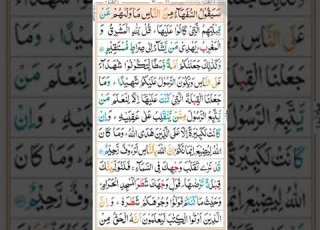 سَيَقُولُ السُّفَهَآءُ مِنَ النَّاسِ مَا وَلّٰىهُمْ عَنْ
قِبْلَتِهِمُ الَّتِيْ كَانُوْا عَلَيْهَا ؕ قُلْ لِّلّٰهِ الْمَشْرِقُ وَ
الْمَغْرِبُ ؕ يَهْدِيْ مَنْ يَّشَآءُ اِلٰى صِرَاطٍ مُّسْتَقِيْمٍ
وَكَذٰلِكَ جَعَلْنٰكُمْ اُمَّةً وَّسَطًا لِّتَكُوْنُوْا شُهَدَآءَ
عَلَى النَّاسِ وَيَكُوْنَ الرَّسُوْلُ عَلَيْكُمْ شَهِيْدًا ؕ وَمَا
جَعَلْنَا الْقِبْلَةَ الَّتِيْ كُنْتَ عَلَيْهَاۤ اِلَّا لِنَعْلَمَ مَنْ
يَّتَّبِعُ الرَّسُوْلَ مِمَّنْ يَّنْقَلِبُ عَلٰى عَقِبَيْهِ ؕ وَاِنْ
كَانَتْ لَكَبِيْرَةً اِلَّا عَلَى الَّذِيْنَ هَدَى اللّٰهُ ؕ وَمَا كَانَ
اللّٰهُ لِيُضِيْعَ اِيْمَانَكُمْ ؕ اِنَّ اللّٰهَ بِالنَّاسِ لَرَءُوْفٌ رَّحِيْمٌ
قَدْ نَرٰى تَقَلُّبَ وَجْهِكَ فِي السَّمَآءِ ۚ فَلَنُوَلِّيَنَّكَ
قِبْلَةً تَرْضٰىهَا ۪ فَوَلِّ وَجْهَكَ شَطْرَ الْمَسْجِدِ الْحَرَامِ ؕ
وَحَيْثُ مَا كُنْتُمْ فَوَلُّوْا وُجُوْهَكُمْ شَطْرَهٗ ؕ وَاِنَّ
الَّذِيْنَ اُوْتُوا الْكِتٰبَ لَيَعْلَمُوْنَ اَنَّهُ الْحَقُّ مِنْ